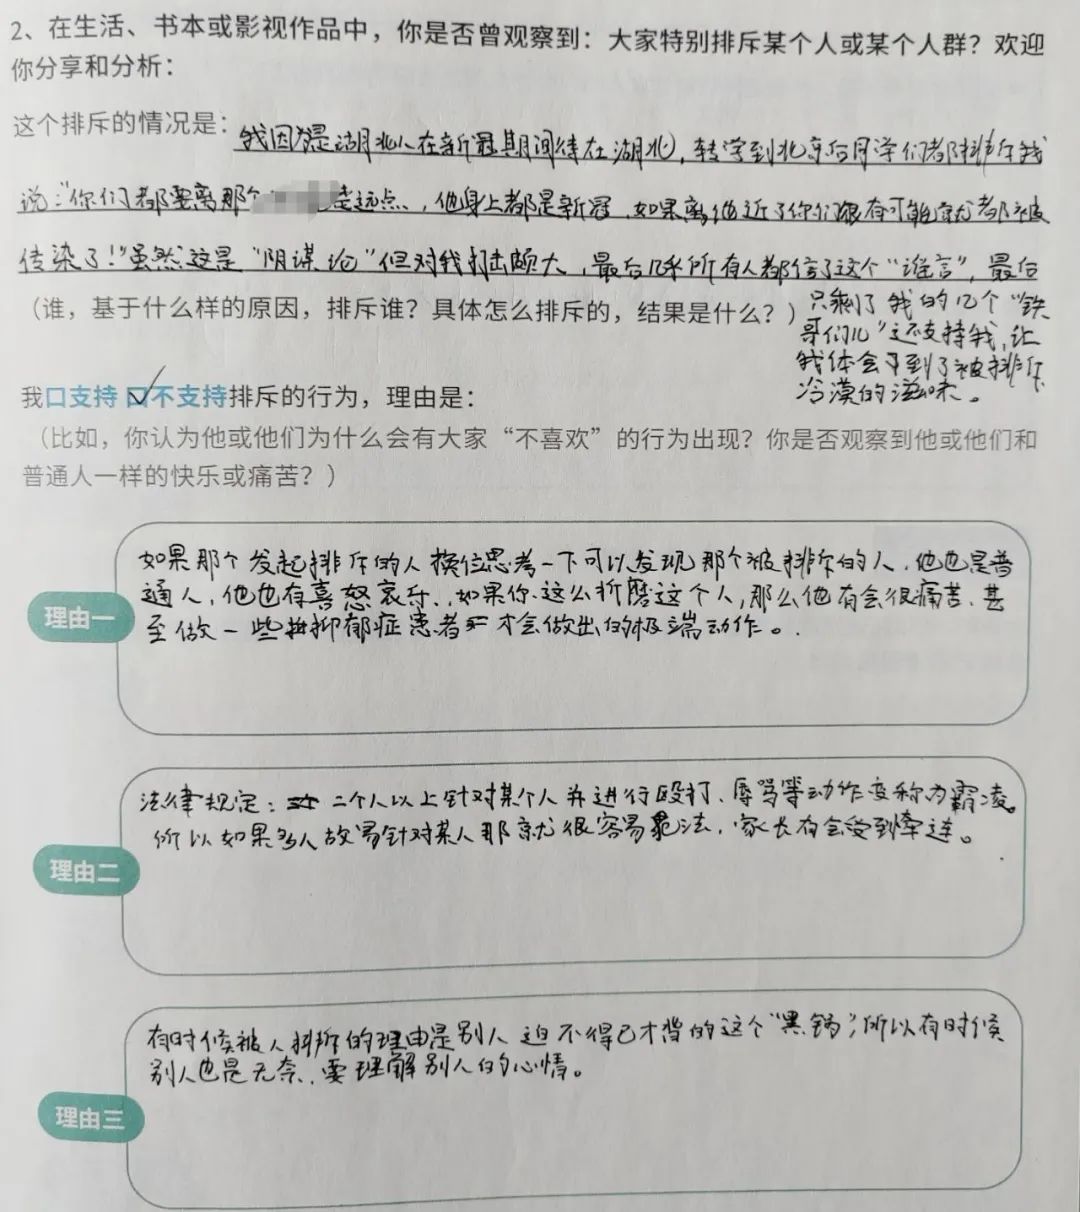 2、在生活、书本或影视作品中，你是否曾观察到：大家特别排斥某个人或某个人群？欢迎
你分享和分析：
这个排斥的情况是：我因为是湖北人在新冠期间待在湖北，转学到北京后同学们都排斥我
说：“你们都要离那个走远点，他身上都是新冠，如果离他近了你们很有可能就都被
传染了！”虽然这是“阴谋论”但对我打击颇大，最后几乎所有人都信了这个“谣言”，最后
（谁，基于什么样的原因，排斥谁？具体怎么排斥的，结果是什么？）只剩了我的几个“铁
哥们儿”还支持我，让
我体会到了被排斥
冷漠的滋味。
我口支持 口不支持排斥的行为，理由是：
（比如，你认为他或他们为什么会有大家“不喜欢”的行为出现？你是否观察到他或他们和
普通人一样的快乐或痛苦？）
如果那个发起排斥的人换位思考一下可以发现那个被排斥的人，他也是普
通人，他也有喜怒哀乐，如果你这么折磨这个人，那么他有会很痛苦，甚
理由一
至做一些抑郁症患者才会做出的极端动作。
法律规定：二个人以上针对某个人并进行殴打、辱骂等动作变称为霸凌。
所以如果多人故意针对某人那就很容易犯法，家长有会受到牵连。
理由二
有时候被人排斥的理由是别人迫不得已才背的这个“黑锅”，所以有时候
别人也是无奈，要理解别人的心情。
理由三